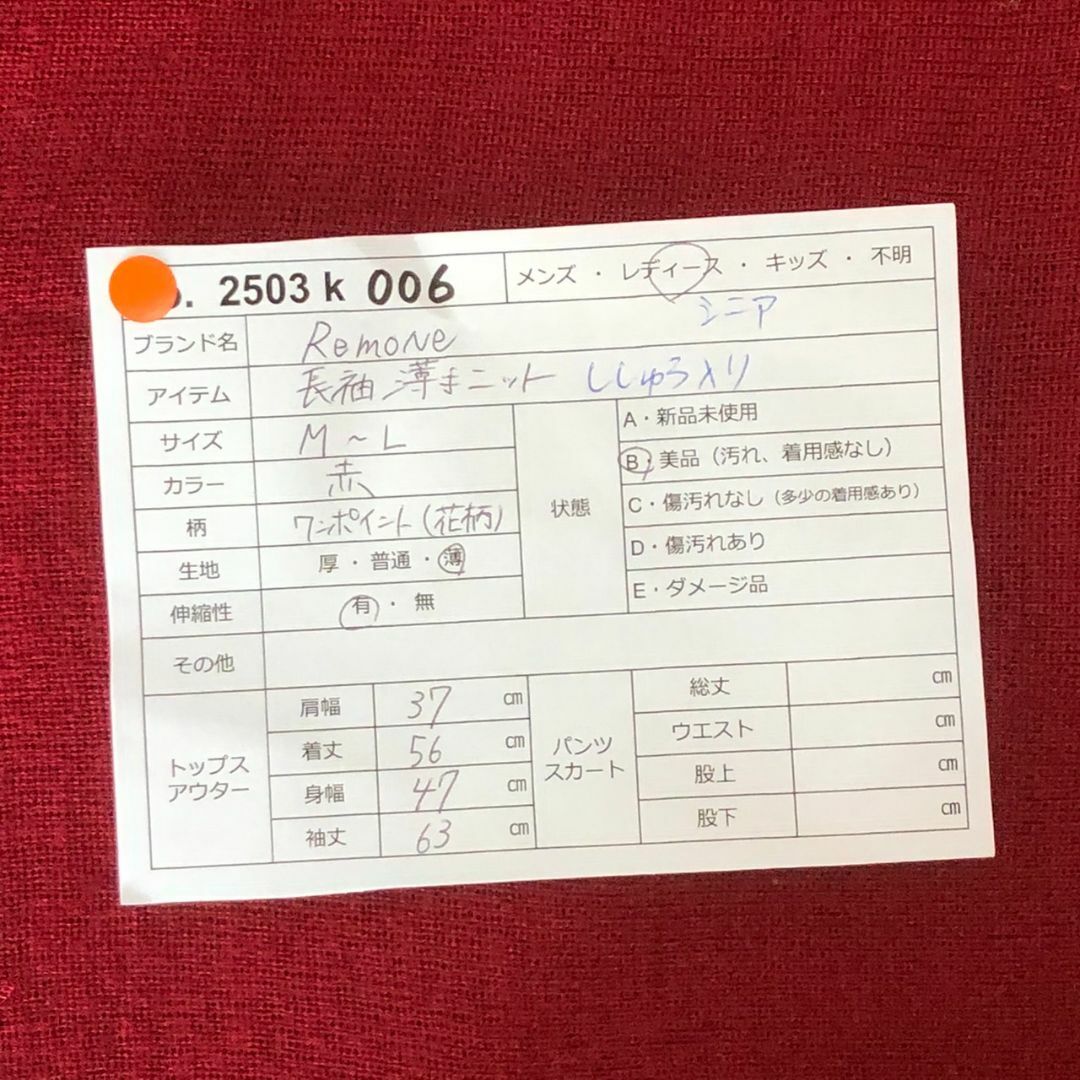 . 2503 k 006
メンズ ・ レディース ・ キッズ ・ 不明
シニア
ブランド名 Remone
アイテム 長袖 薄手ニット ししゅう入り
サイズ M ~ L
カラー 赤
柄 ワンポイント(花柄)
生地 厚 ・ 普通 ・ 薄
伸縮性 有 ・ 無
状態
A・新品未使用
B・美品(汚れ、着用感なし)
C・傷汚れなし(多少の着用感あり)
D・傷汚れあり
E・ダメージ品
その他
トップス
アウター
肩幅 37 cm
着丈 56 cm
身幅 47 cm
袖丈 63 cm
パンツ
スカート
総丈 cm
ウエスト cm
股上 cm
股下 cm